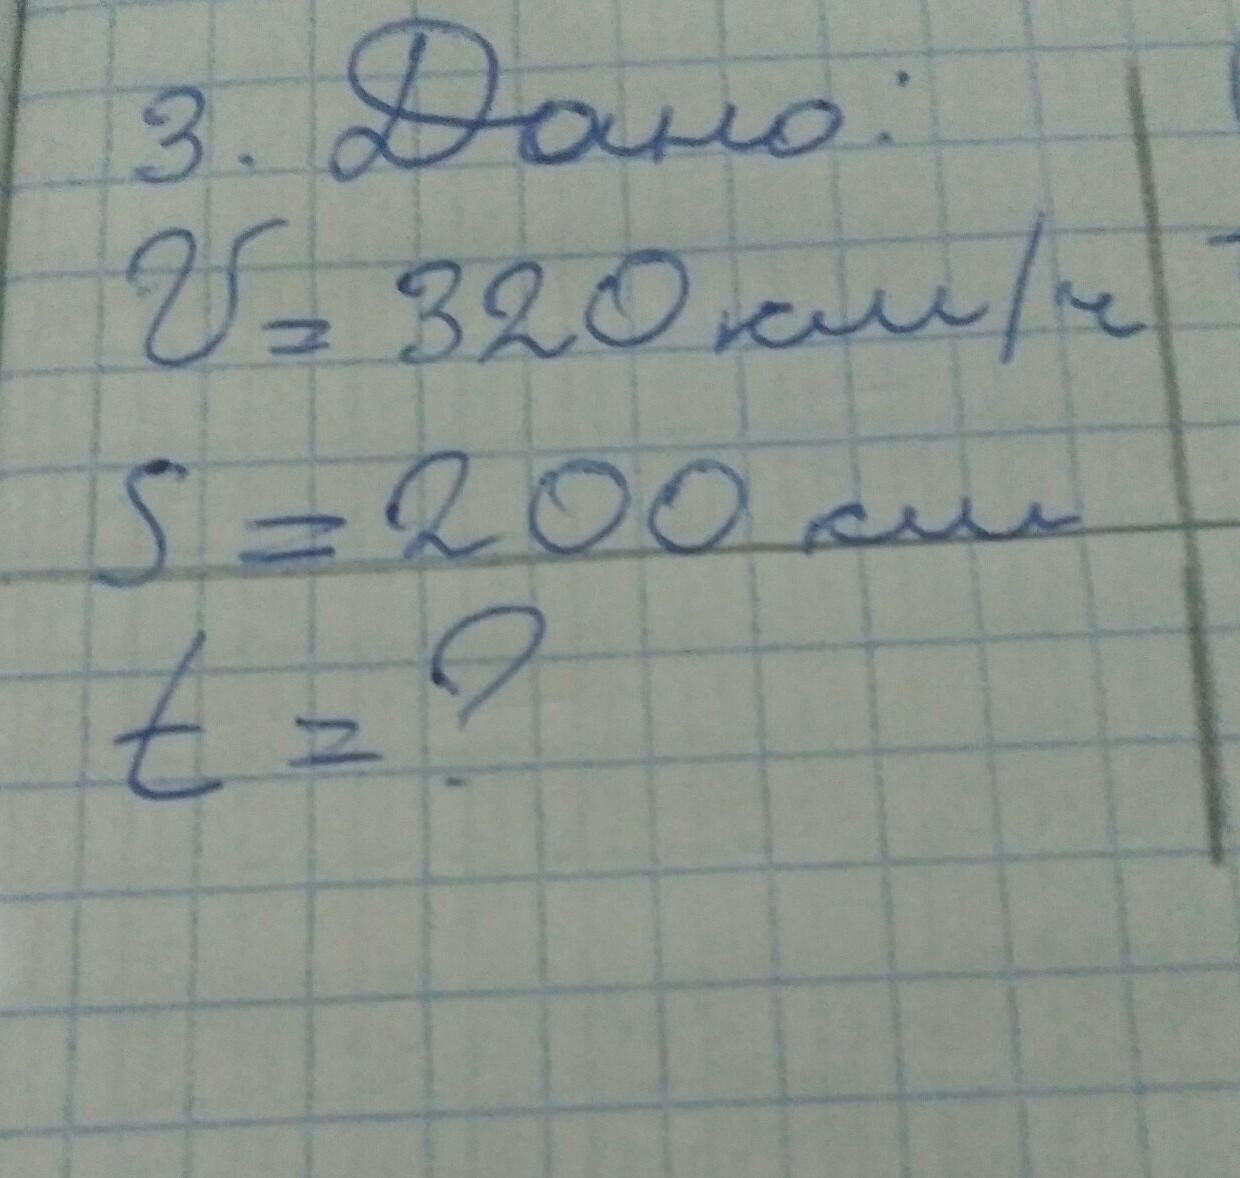 3. Дано:
V = 320 км/ч
S = 200 км
t = ?